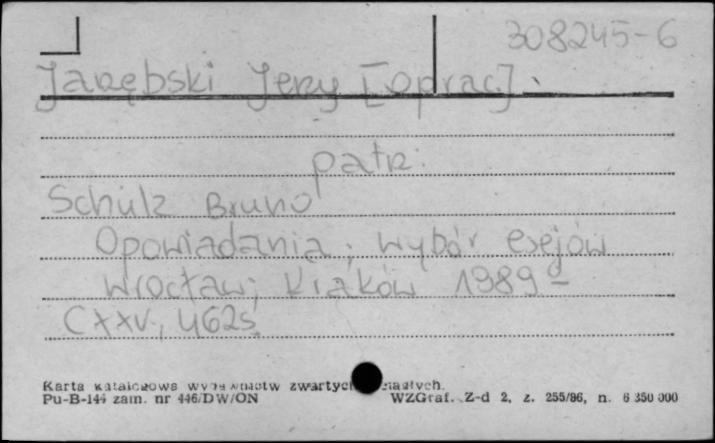 308245-6
Jarębski Jerzy [oprac].
patrz:
Schulz Bruno
Opowiadania; wybór esejów
Wrocław; Kraków 1989 –
CXXV, 462s.
Karta katalogowa wydawnictw zwartych ciągłych.
Pu-B-144 zam. nr 446/DW/ON WZGraf. Z-d 2, z. 255/86, n. 6 350 000